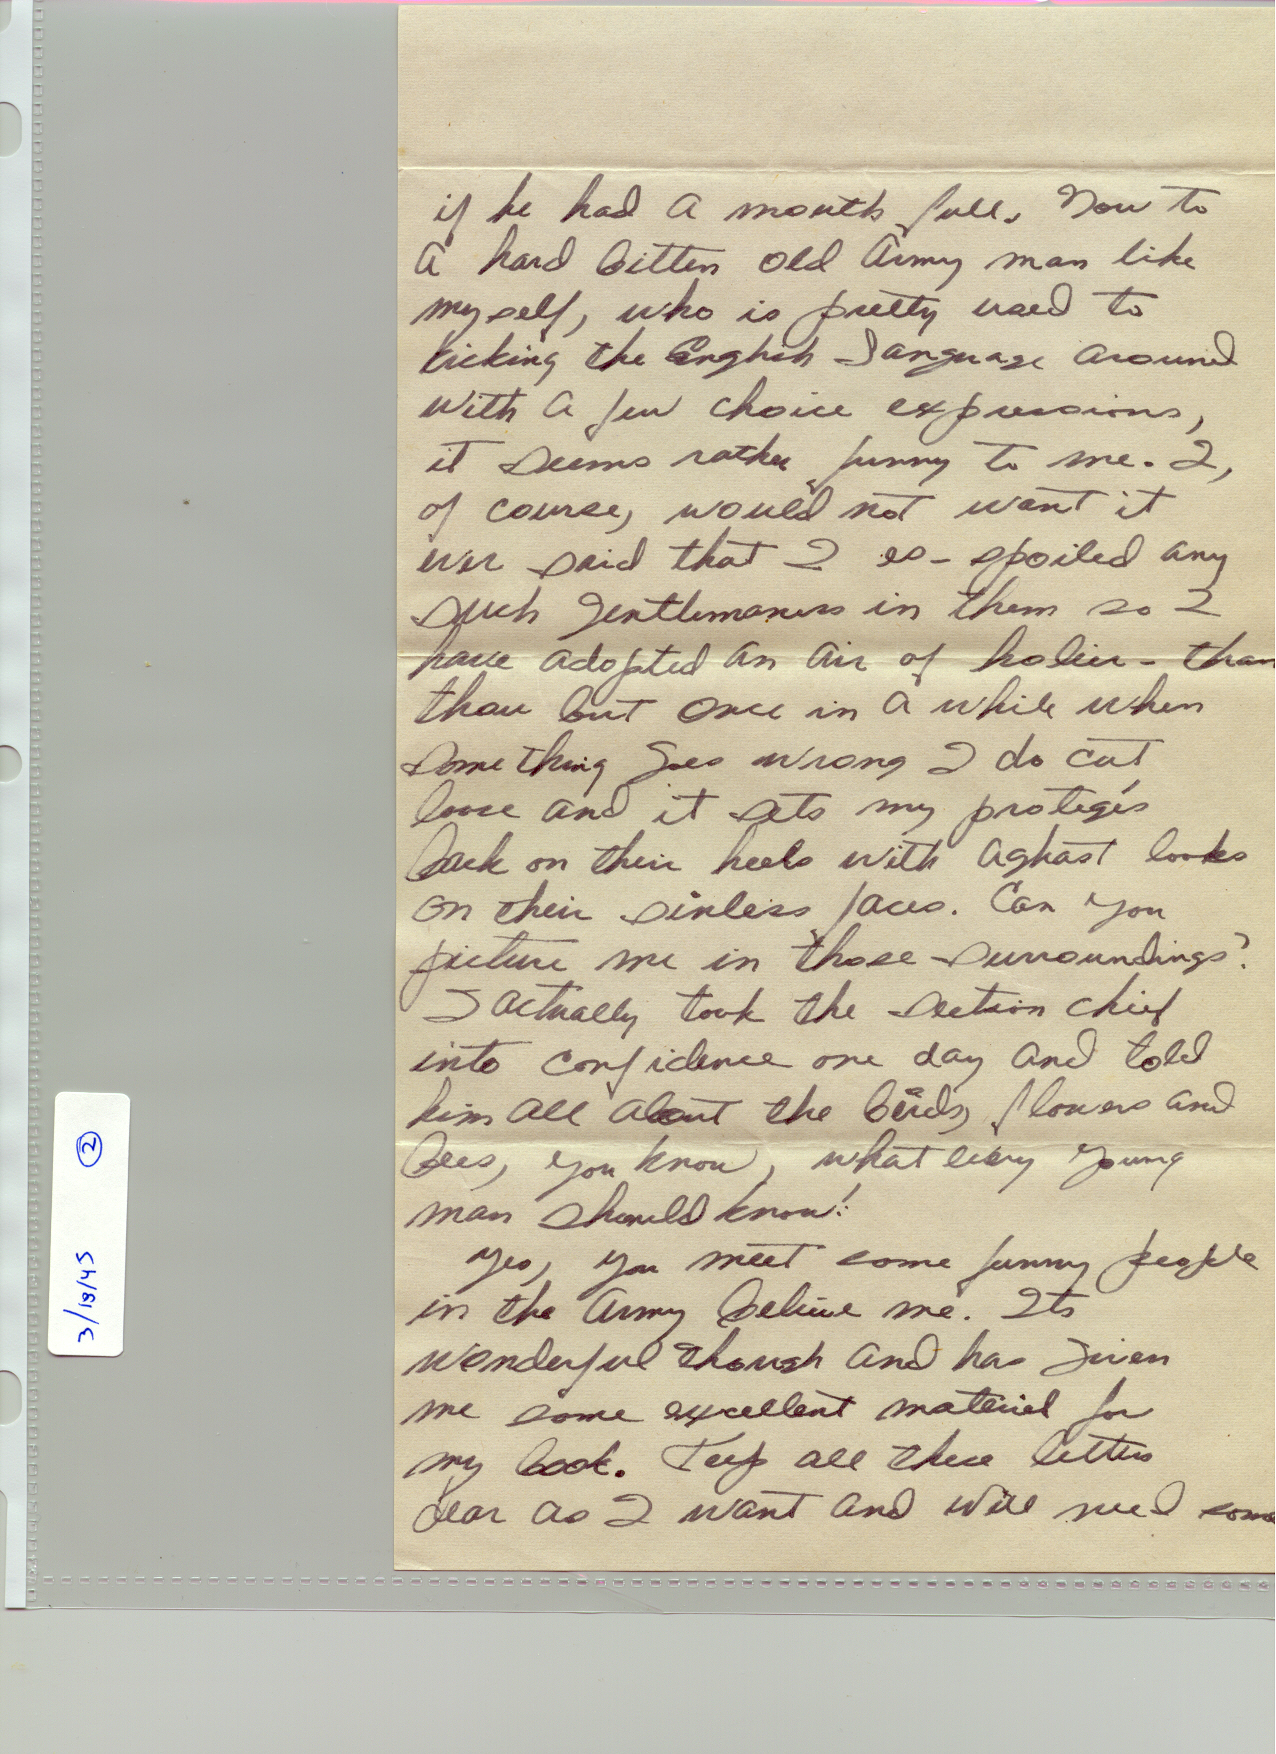 if he had a mouth full. Now to
a hard bitten old Army man like
myself, who is pretty used to
kicking the English Language around
with a few choice expressions,
it seems rather funny to me. I,
of course, would not want it
ever said that I es-spoiled any
such gentlemaness in them so I
have adopted an air of holier-than
thou but once in a while when
something goes wrong I do cut
loose and it sets my protegés
back on their heels with aghast looks
on their sinless faces. Can you
picture me in those surroundings?
I actually took the section chief
into confidence one day and told
him all about the birds, flowers and
bees, you know, what every young
man should know!
Yes, you meet some funny people
in the Army believe me. Its
wonderful though and has given
me some excellent material for
my book. Keep all these letters
dear as I want and will need some
3/18/45 ②